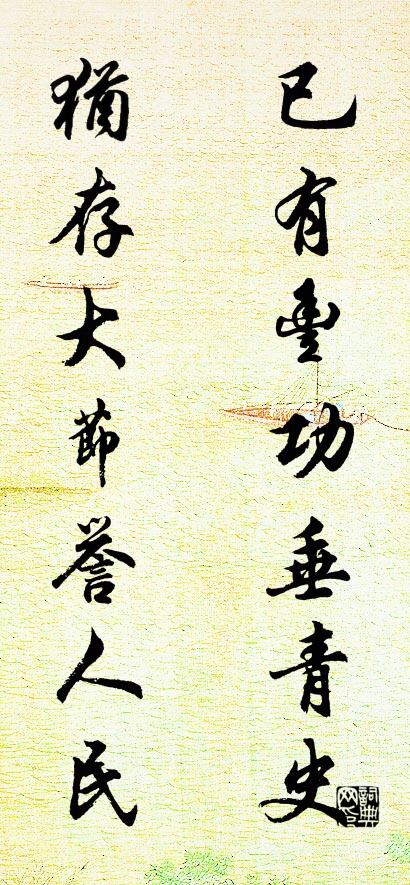 已有豐功垂青史
猶存大節誉人民
詞典网